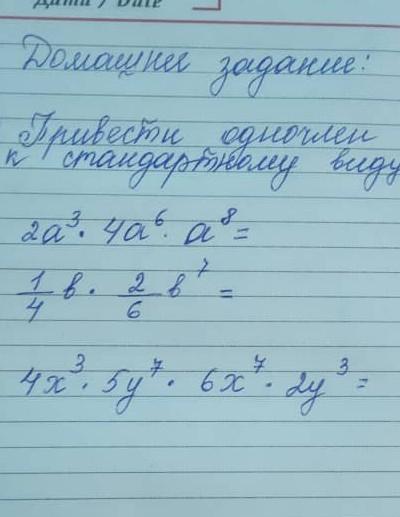 Дата / Date
Домашнее задание:
Привести одночлен
к стандартному виду
2a³ · 4a⁶ · a⁸ =
1/4 в · 2/6 в⁷ =
4x³ · 5y⁷ · 6x⁷ · 2y³ =